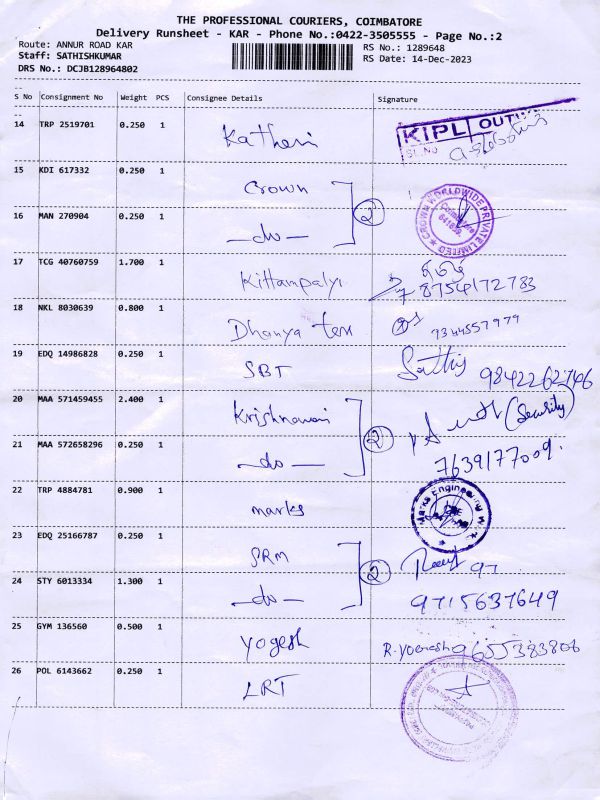 THE PROFESSIONAL COURIERS, COIMBATORE
Delivery Runsheet - KAR - Phone No.:0422-3505555 - Page No.:2
Route: ANNUR ROAD KAR
RS No.: 1289648
Staff: SATHISHKUMAR
RS Date: 14-Dec-2023
DRS No.: DCJB128964802
S No Consignment No Weight PCS Consignee Details Signature
14 TRP 2519701 0.250 1 KIPL OUT
15 KDI 617332 0.250 1 Crown
16 MAN 270904 0.250 1 —do— 2 CROWN WORLDWIDE PRIVATE LIMITED
17 TCG 40760759 1.700 1 Kittampalyi 8754172783
18 NKL 8030639 0.800 1 Dhanya 9344557979
19 EDQ 14986828 0.250 1 SBT Sathis 9842262746
20 MAA 571459455 2.400 1 (Security)
21 MAA 572658296 0.250 1 —do— 2 7639177009.
22 TRP 4884781 0.900 1 marks Marks Engineering
23 EDQ 25166787 0.250 1 SRM 97
24 STY 6013334 1.300 1 —do— 2 9715637649
25 GYM 136560 0.500 1 Yogesh 9655383806
26 POL 6143662 0.250 1 LRT